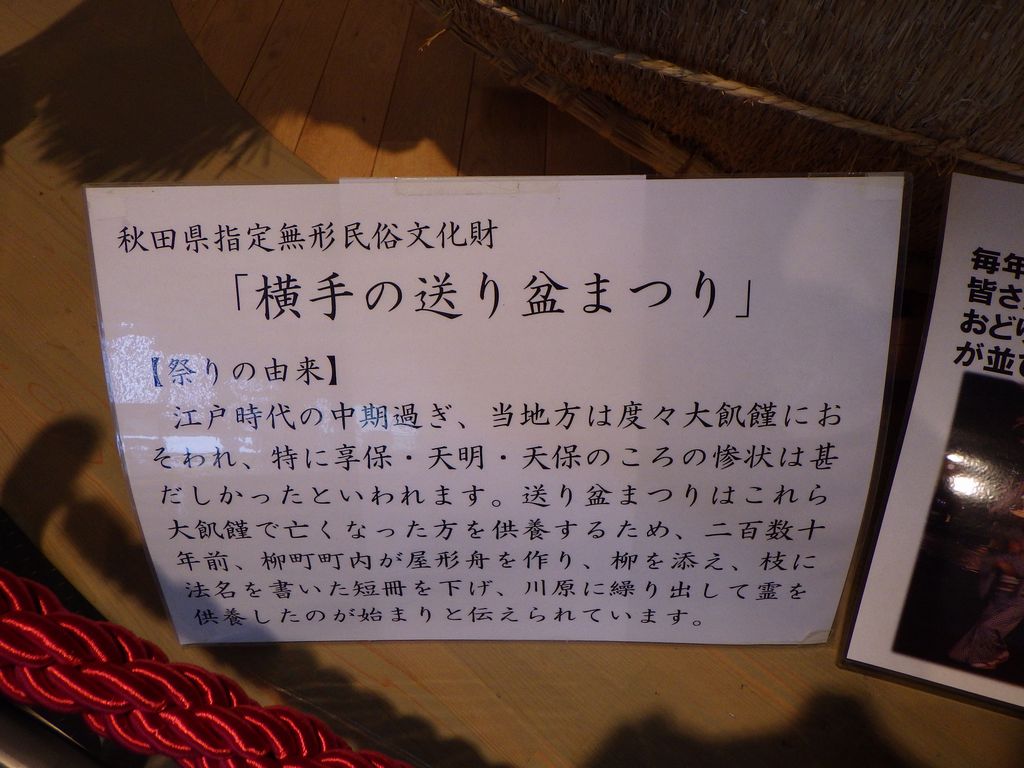 秋田県指定無形民俗文化財
「横手の送り盆まつり」
【祭りの由来】
江戸時代の中期過ぎ、当地方は度々大飢饉にお
そわれ、特に享保・天明・天保のころの惨状は甚
だしかったといわれます。送り盆まつりはこれら
大飢饉で亡くなった方を供養するため、二百数十
年前、柳町町内が屋形舟を作り、柳を添え、枝に
法名を書いた短冊を下げ、川原に繰り出して霊を
供養したのが始まりと伝えられています。
毎年
皆さ
おど
が並